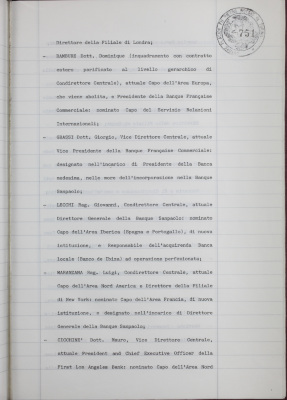 751
Direttore della Filiale di Londra;
- Dott. Dominique (inquadramento con contratto
estero parificato al livello gerarchico di
Condirettore Centrale), attuale Capo dell'Area Europa,
che viene abolita, e Presidente della Banque Française
Commerciale: nominato Capo del Servizio Relazioni
Internazionali;
- GRASSI Dott. Giorgio, Vice Direttore Centrale, attuale
Vice Presidente della Banque Française Commerciale:
designato nell'incarico di Presidente della Banca
medesima, nelle more dell'incorporazione nella Banque
Sanpaolo;
- Rag. Giovanni, Condirettore Centrale, attuale
Direttore Generale della Banque Sanpaolo: nominato
Capo dell'Area Iberica (Spagna e Portogallo), di nuova
istituzione, e Responsabile dell'acquirenda Banca
locale (Banco de ) ad operazione perfezionata;
- MARANZANA Rag. Luigi, Condirettore Centrale, attuale
Capo dell'Area Nord America e Direttore della Filiale
di New York: nominato Capo dell'Area Francia, di nuova
istituzione, e designato nell'incarico di Direttore
Generale della Banque Sanpaolo;
- Dott. Mauro, Vice Direttore Centrale,
attuale President and Chief Executive Officer della
First Los Angeles Bank: nominato Capo dell'Area Nord